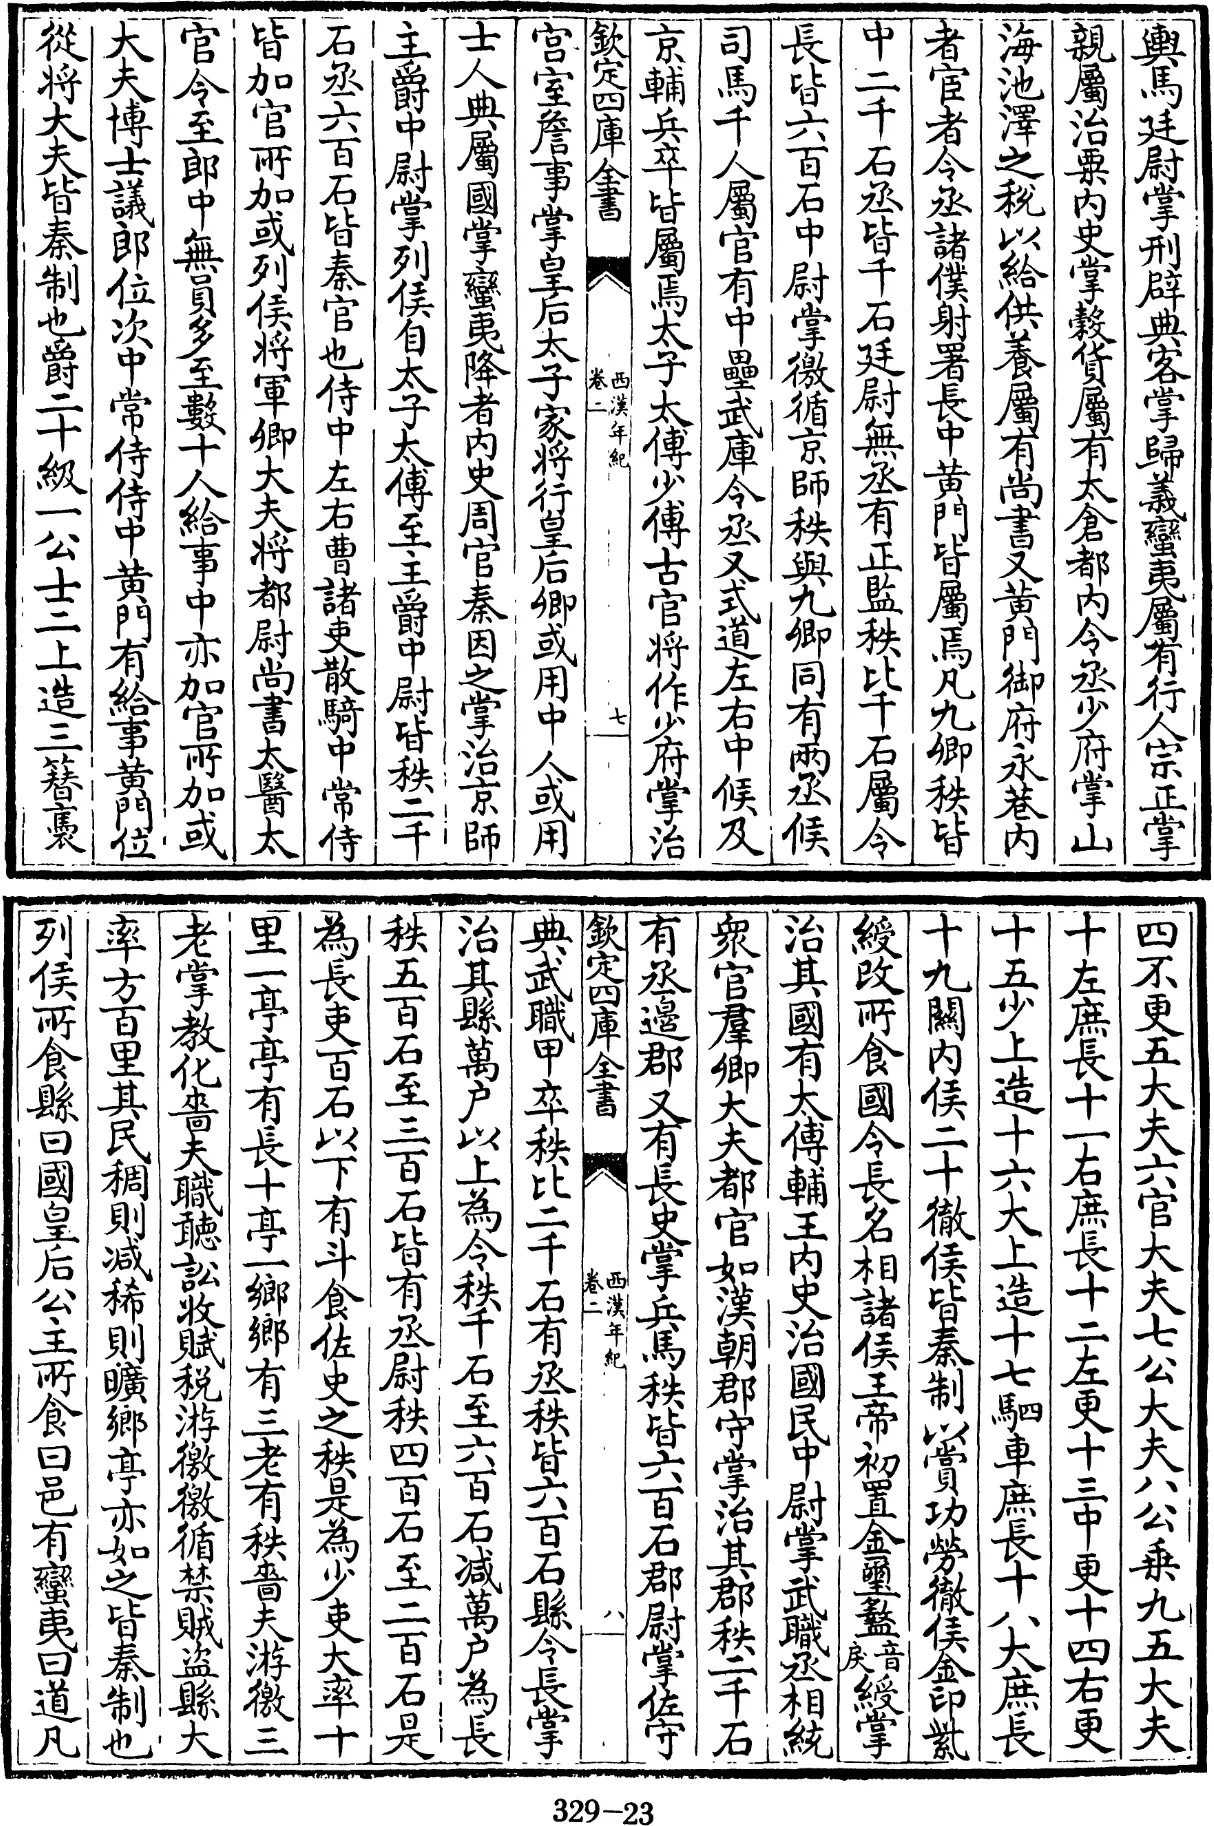 輿馬廷尉掌刑辟典客掌歸義蠻夷屬有行人宗正掌
親屬治粟内史掌穀貨屬有太倉都内令丞少府掌山
海池澤之税以給供養屬有尚書又黄門御府永巷内
者宦者令丞諸僕射署長中黄門皆屬焉凡九卿秩皆
中二千石丞皆千石廷尉無丞有正監秩比千石屬令
長皆六百石中尉掌徼循京師秩與九卿同有兩丞候
司馬千人屬官有中壘武庫令丞又式道左右中候及
京輔兵卒皆屬焉太子太傅少傅古官将作少府掌治
欽定四庫全書
西漢年紀
卷二
七
宫室詹事掌皇后太子家将行皇后卿或用中人或用
士人典屬國掌蠻夷降者内史周官秦因之掌治京師
主爵中尉掌列侯自太子太傅至主爵中尉皆秩二千
石丞六百石皆秦官也侍中左右曹諸吏散騎中常侍
皆加官所加或列侯将軍卿大夫将都尉尚書太醫太
官令至郎中無員多至數十人給事中亦加官所加或
大夫博士議郎位次中常侍侍中黄門有給事黄門位
從将大夫皆秦制也爵二十級一公士二上造三簪褭
四不更五大夫六官大夫七公大夫八公乘九五大夫
十左庶長十一右庶長十二左更十三中更十四右更
十五少上造十六大上造十七駟車庶長十八大庶長
十九關内侯二十徹侯皆秦制以賞功勞徹侯金印紫
綬改所食國令長名相諸侯王帝初置金璽盭音戾綬掌
治其國有太傅輔王内史治國民中尉掌武職丞相統
衆官羣卿大夫都官如漢朝郡守掌治其郡秩二千石
有丞邊郡又有長史掌兵馬秩皆六百石郡尉掌佐守
欽定四庫全書
西漢年紀
卷二
八
典武職甲卒秩比二千石有丞秩皆六百石縣令長掌
治其縣萬户以上為令秩千石至六百石减萬户為長
秩五百石至三百石皆有丞尉秩四百石至二百石是
為長吏百石以下有斗食佐史之秩是為少吏大率十
里一亭亭有長十亭一鄉鄉有三老有秩嗇夫游徼三
老掌教化嗇夫職聽訟收賦税游徼徼循禁賊盗縣大
率方百里其民稠則减稀則曠鄉亭亦如之皆秦制也
列侯所食縣曰國皇后公主所食曰邑有蠻夷曰道凡
329-23